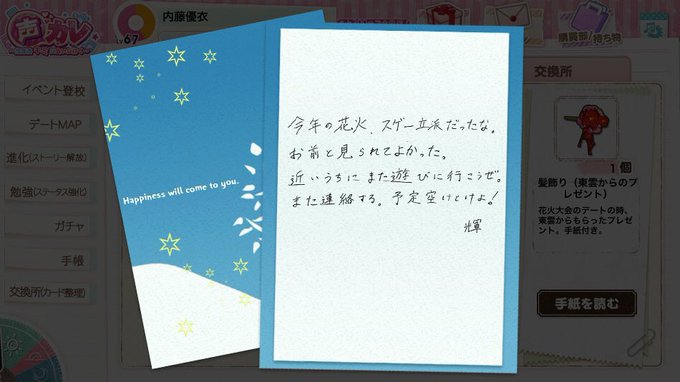 声カレ
内藤優衣
LV67
購買部/持ち物
イベント登校
デートMAP
進化(ストーリー解放)
勉強(ステータス強化)
ガチャ
手帳
交換所(カード整理)
Happiness will come to you.
今年の花火、スゲー立派だったな。
お前と見られてよかった。
近いうちにまた遊びに行こうぜ。
また連絡する。予定空けとけよ!
輝
交換所
1個
髪飾り(東雲からのプレゼント)
花火大会のデートの時、
東雲からもらったプレゼ
ント。手紙付き。
手紙を読む